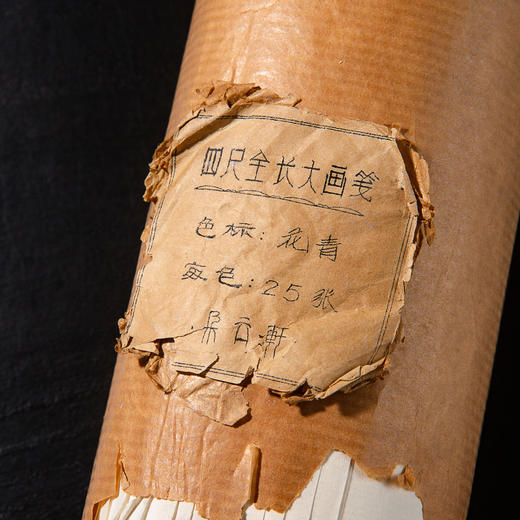 四尺全长大画笺
色标：花青
每色：25张
朵云軒